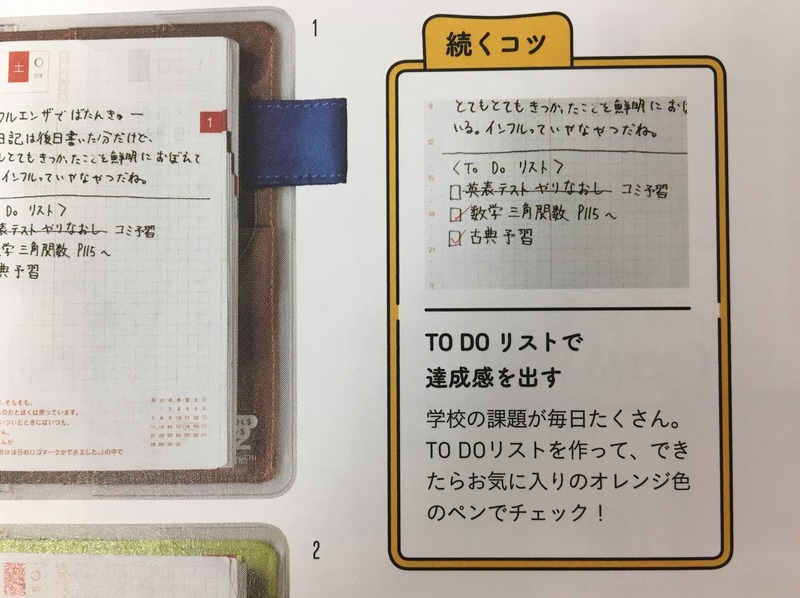 1
土
1
フルエンザでばたんきゅー
日記は後日書いた分だけど、
もとてもきつかったことを鮮明におぼえて
インフルっていやなやつだね。
Do リスト〉
表テスト やりなおし コミ予習
学 三角関数 P115〜
典予習
、そもそも、
のだとぼくは思っています。
いついたときにはいつも、
ん。
さんが
月 火 水 木 金 土 日
2
続くコツ
とてもとても きつかったことを鮮明に おぼ
いる。インフルっていやなやつだね。
〈To Do リスト〉
英表テスト やりなおし コミ予習
数学 三角関数 P115〜
古典予習
TO DO リストで
達成感を出す
学校の課題が毎日たくさん。
TO DOリストを作って、でき
たらお気に入りのオレンジ色
のペンでチェック！